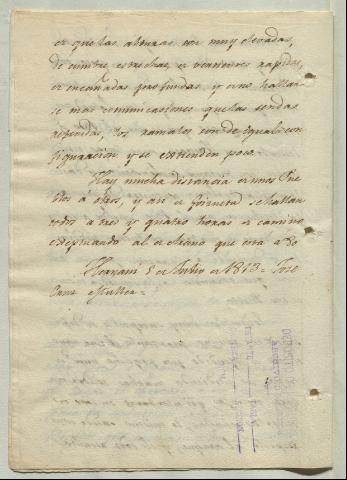 es que las alturas son muy elevadas,
de cumbres estrechas, de vertientes rapidas,
de encañadas profundas y si no hallar-
se mas comunicaciones que las sendas
referidas, los ramales son de igual con
figuracion y se extienden poco.
Hay mucha distancia de unos Pue
blos á otros, y asi de se hallan
todos a tres y quatro horas de camino
exceptuando al de que esta a do
Hernani 5 de Julio de 1813 = José